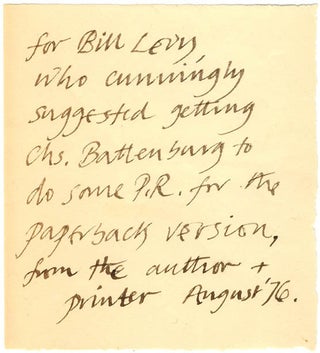 for Bill Levy,
who cunningly
suggested getting
Chs. Battenburg to
do some P.R. for the
paperback version,
from the author +
printer August '76.